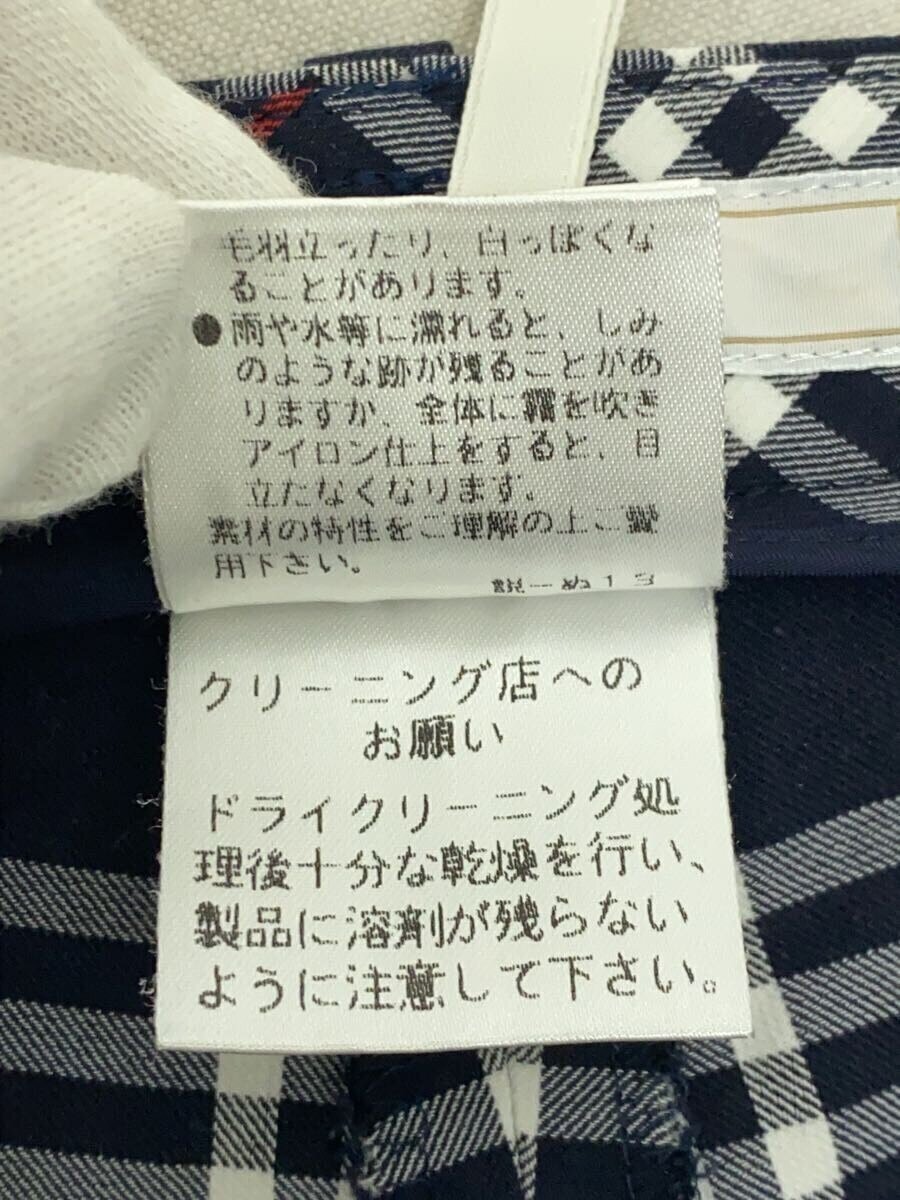 毛羽立ったり、白っぽくな
ることがあります。
●雨や水等に濡れると、しみ
のような跡が残ることがあ
りますが、全体に霧を吹き
アイロン仕上をすると、目
立たなくなります。
素材の特性をご理解の上ご愛
用下さい。
説ーぬ13
クリーニング店への
お願い
ドライクリーニング処
理後十分な乾燥を行い、
製品に溶剤が残らない
ように注意して下さい。